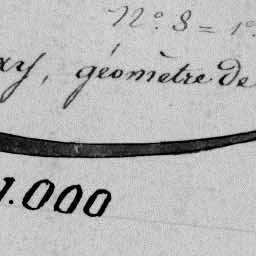 N° 8 = 1°
xy, géomètre de
1.000